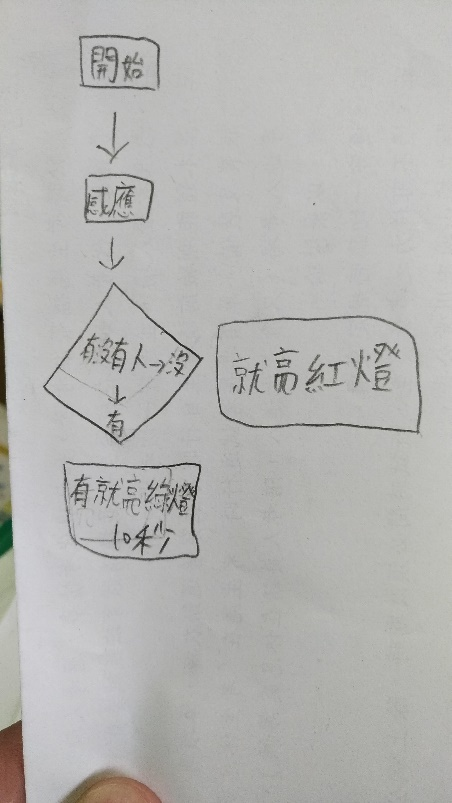 開始
感應
有沒有人→沒
有
就亮紅燈
有就亮綠燈
10秒